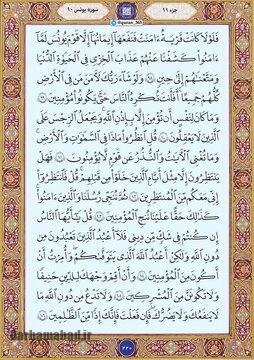 جزء ۱۱
سوره یونس ۱۰
فَلَوْلَا كَانَتْ قَرْيَةٌ ءَامَنَتْ فَنَفَعَهَا إِيمَانُهَا إِلَّا قَوْمَ يُونُسَ لَمَّا
ءَامَنُوا كَشَفْنَا عَنْهُمْ عَذَابَ الْخِزْىِ فِى الْحَيَوٰةِ الدُّنْيَا
وَمَتَّعْنَاهُمْ إِلَىٰ حِينٍ ۝٩٨ وَلَوْ شَاءَ رَبُّكَ لَآمَنَ مَن فِى الْأَرْضِ
كُلُّهُمْ جَمِيعًا أَفَأَنتَ تُكْرِهُ النَّاسَ حَتَّىٰ يَكُونُوا مُؤْمِنِينَ ۝٩٩
وَمَا كَانَ لِنَفْسٍ أَن تُؤْمِنَ إِلَّا بِإِذْنِ اللَّهِ وَيَجْعَلُ الرِّجْسَ عَلَى
الَّذِينَ لَا يَعْقِلُونَ ۝١٠٠ قُلِ انظُرُوا مَاذَا فِى السَّمَٰوَٰتِ وَالْأَرْضِ
وَمَا تُغْنِى الْآيَٰتُ وَالنُّذُرُ عَن قَوْمٍ لَّا يُؤْمِنُونَ ۝١٠١ فَهَلْ
يَنتَظِرُونَ إِلَّا مِثْلَ أَيَّامِ الَّذِينَ خَلَوْا مِن قَبْلِهِمْ قُلْ فَانتَظِرُوا
إِنِّى مَعَكُم مِّنَ الْمُنتَظِرِينَ ۝١٠٢ ثُمَّ نُنَجِّى رُسُلَنَا وَالَّذِينَ ءَامَنُوا
كَذَٰلِكَ حَقًّا عَلَيْنَا نُنجِ الْمُؤْمِنِينَ ۝١٠٣ قُلْ يَٰأَيُّهَا النَّاسُ
إِن كُنتُمْ فِى شَكٍّ مِّن دِينِى فَلَا أَعْبُدُ الَّذِينَ تَعْبُدُونَ مِن
دُونِ اللَّهِ وَلَٰكِنْ أَعْبُدُ اللَّهَ الَّذِى يَتَوَفَّاكُمْ وَأُمِرْتُ أَنْ
أَكُونَ مِنَ الْمُؤْمِنِينَ ۝١٠٤ وَأَنْ أَقِمْ وَجْهَكَ لِلدِّينِ حَنِيفًا
وَلَا تَكُونَنَّ مِنَ الْمُشْرِكِينَ ۝١٠٥ وَلَا تَدْعُ مِن دُونِ اللَّهِ مَا
لَا يَنفَعُكَ وَلَا يَضُرُّكَ فَإِن فَعَلْتَ فَإِنَّكَ إِذًا مِّنَ الظَّالِمِينَ ۝١٠٦
۲۲۰
Darbamabad.ir